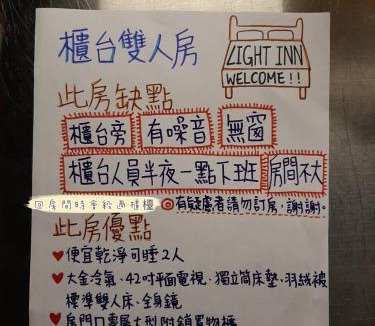 櫃台雙人房
LIGHT INN
WELCOME!!
此房缺點
櫃台旁 有噪音 無窗
櫃台人員半夜一點下班 房間不大
回房間時會經過櫃檯 有疑慮者請勿訂房，謝謝。
此房優點
便宜乾淨可睡2人
大金冷氣、42吋平面電視、獨立筒床墊、羽絨被
標準雙人床、全身鏡
房門口專屬大型附鎖置物櫃